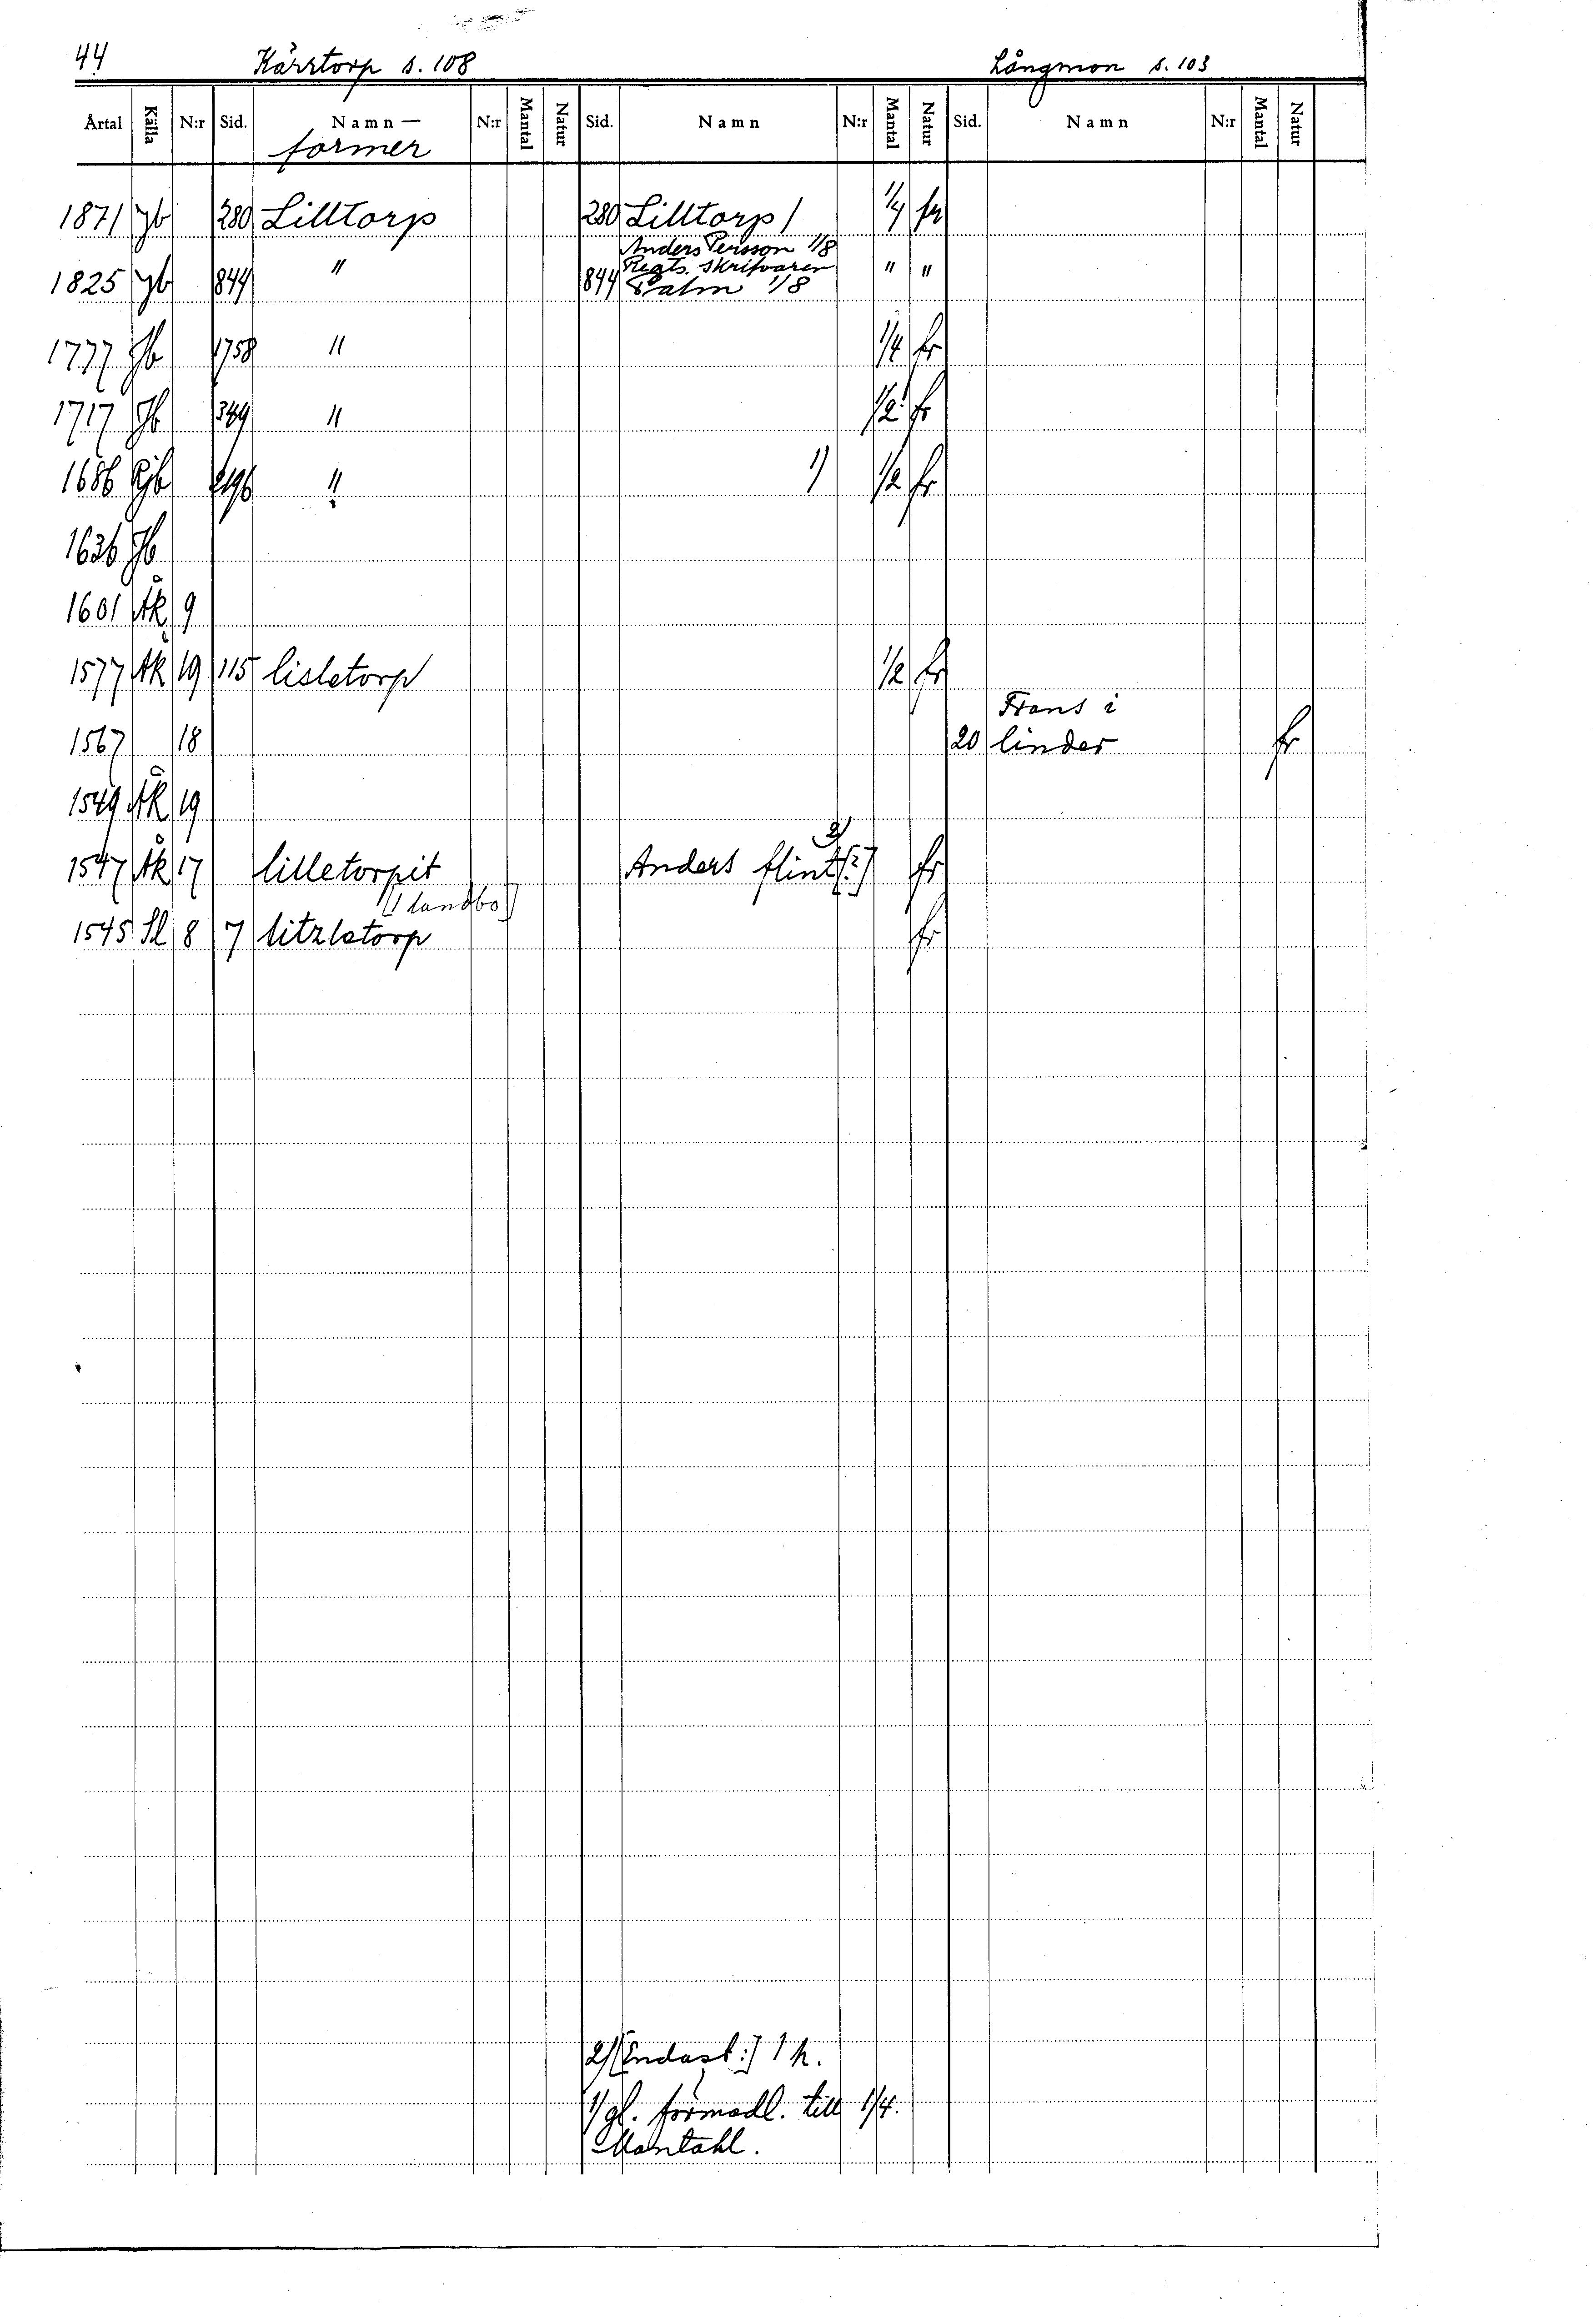 44 Kärrtorp s. 108 Långmon s. 103
Årtal Källa N:r Sid. Namn— N:r Mantal Natur Sid. Namn N:r Mantal Natur Sid. Namn N:r Mantal Natur
former
1871 Jb 280 Lilltorp 280 Lilltorp / 1/4 fr
Anders Persson 1/8
Regts. Skrifvaren
1825 Jb 844 " 844 Palm 1/8 " "
1777 Jb 1758 " 1/4 fr
1717 Jb 349 " 1/2 fr
1686 Rjb 2196 " 1) 1/2 fr
1636 Jb
1601 Åk 9
1577 Åk 19 115 lisletorp 1/2 fr
Frans i
1567 18 20 linder fr
1549 Åk 19
2)
1547 Åk 17 lilletorpit Anders flint [?] fr
[1 landbo]
1545 Sl 8 7 litzletorp fr
2) [Endast:] 1 h.
1/ gl. förmedl. till 1/4.
Mantahl.